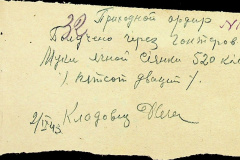 20 Приходной ордер №
Получено через контеров
Муки ячной сеянки 520 кил
/ пятсот двацит /.
2/IV43 Кладовщ